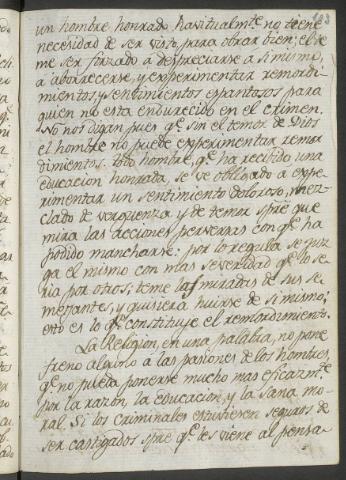 un hombre honrado havitualmte no tiene
necesidad de ser visto, para obrar bien; el te
me ser forzado a despreciarse a si mismo,
a aborrecerse, y experimentar remordi-
mientos, y sentimientos espantosos para
quien no esta endurecido en el crimen.
No nos digan pues qe. sin el temor de Dios
el hombre no puede experimentar remor
dimientos. Todo hombre, qe. ha recibido una
educacion honrada se ve obligado a expe-
rimentar un sentimiento doloroso, mez-
clado de verguenza y de temor spre que
mira las acciones perversas con qe. ha
podido mancharse: por lo regular se juz
ga el mismo con mas severidad qe. lo se
ria por otros; teme las miradas de sus se
mejantes, y quisiera huirse de si mismo;
esto es lo qe. constituye el remordimiento.
La Religion, en una palabra, no pone
freno alguno a las pasiones de los hombres,
qe. no pueda ponerse mucho mas eficazmte.
por la razon, la educacion, y la sana mo-
ral. Si los criminales estuviesen seguros de
ser castigados spre qe. les viene al pensa-